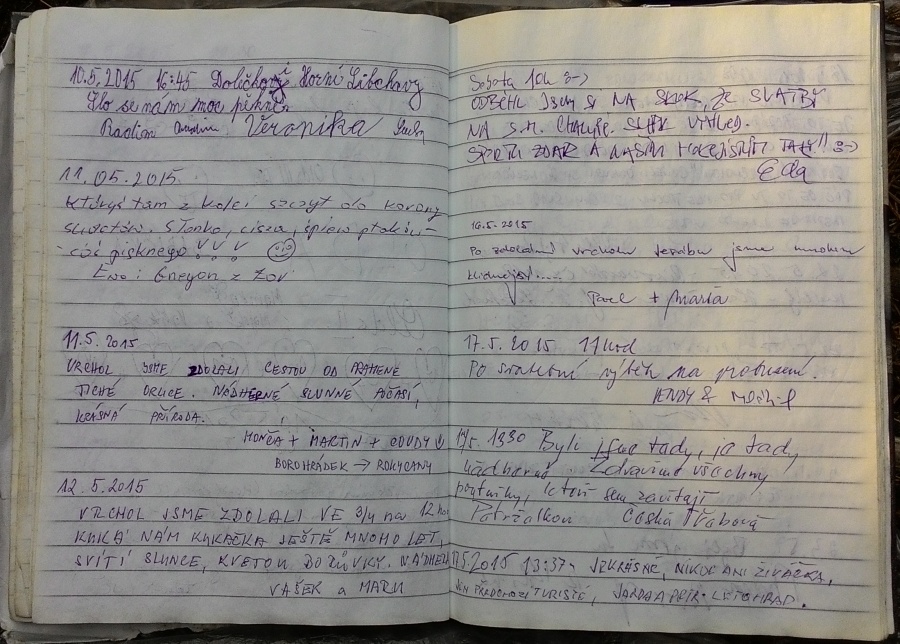 10.5.2015 16:45 Horní Libchavy
Šlo se nám moc pěkně.
Radim Veronika
11.05.2015
któryś tam z kolei szczyt do korony
sudetów. Słonko, cisza, śpiew ptaków –
– coś pięknego !!!
Ewa i z Żor
11.5.2015
VRCHOL JSME ZDOLALI CESTOU OD PRAMENE
TICHÉ ORLICE. NÁDHERNÉ SLUNNÉ POČASÍ,
KRÁSNÁ PŘÍRODA.
HONČA + MARTIN + GOUDY
BOROHRÁDEK → ROKYCANY
12.5.2015
VRCHOL JSME ZDOLALI VE 3/4 na 12 ho
KUKÁ NÁM KUKAČKA JEŠTĚ MNOHO LET,
SVÍTÍ SLUNCE, KVETOU BORŮVKY. NÁDHERA
VAŠEK a MARU
Sobota 10h :-)
ODBĚHLI JSME SI NA SKOK, ZE SVATBY
NA S.M. CHALUPĚ. VÝHLED.
SPORTU ZDAR A NAŠIM HOKEJISTŮM TAKY!! :-)
Eda
16.5.2015
Po zdolání vrcholu jsme mnohem
klidnější.....
Pavel + Maria
17.5.2015 11 hod
Po svatební výběh na probuzení.
JENDY &
17/5. 1330 Byli jsme tady, je tady
nádherně. Zdravíme všechny
poutníky, kteří sem zavítají
Česká Třebová
17.5.2015 13:37 JE KRÁSNĚ, NIKDE ANI ŽIVÁČKA,
JEN PŘEDCHOZÍ TURISTÉ, JARDA A PETR. LETOHRAD.